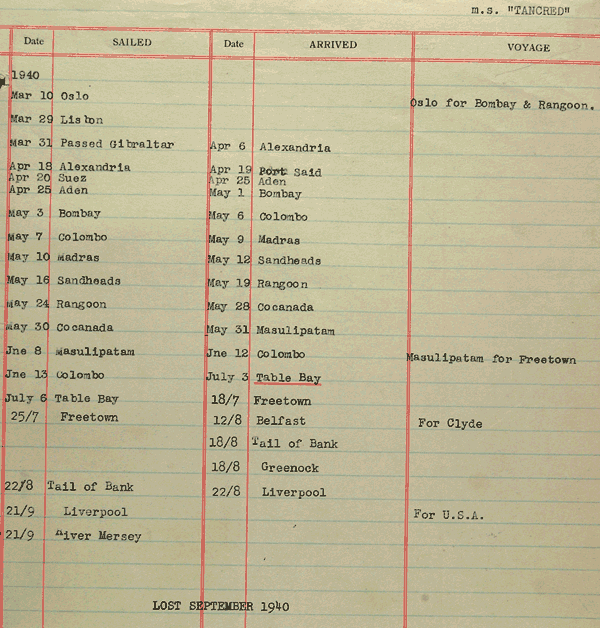 m.s. "TANCRED"
Date SAILED Date ARRIVED VOYAGE
1940
Mar 10 Oslo Oslo for Bombay & Rangoon.
Mar 29 Lisbon
Mar 31 Passed Gibraltar Apr 6 Alexandria
Apr 18 Alexandria Apr 19 Port Said
Apr 20 Suez Apr 25 Aden
Apr 25 Aden May 1 Bombay
May 3 Bombay May 6 Colombo
May 7 Colombo May 9 Madras
May 10 Madras May 12 Sandheads
May 16 Sandheads May 19 Rangoon
May 24 Rangoon May 28 Cocanada
May 30 Cocanada May 31 Masulipatam
Jne 8 Masulipatam Jne 12 Colombo Masulipatam for Freetown
Jne 13 Colombo July 3 Table Bay
July 6 Table Bay 18/7 Freetown
25/7 Freetown 12/8 Belfast For Clyde
18/8 Tail of Bank
18/8 Greenock
22/8 Tail of Bank 22/8 Liverpool
21/9 Liverpool For U.S.A.
21/9 River Mersey
LOST SEPTEMBER 1940